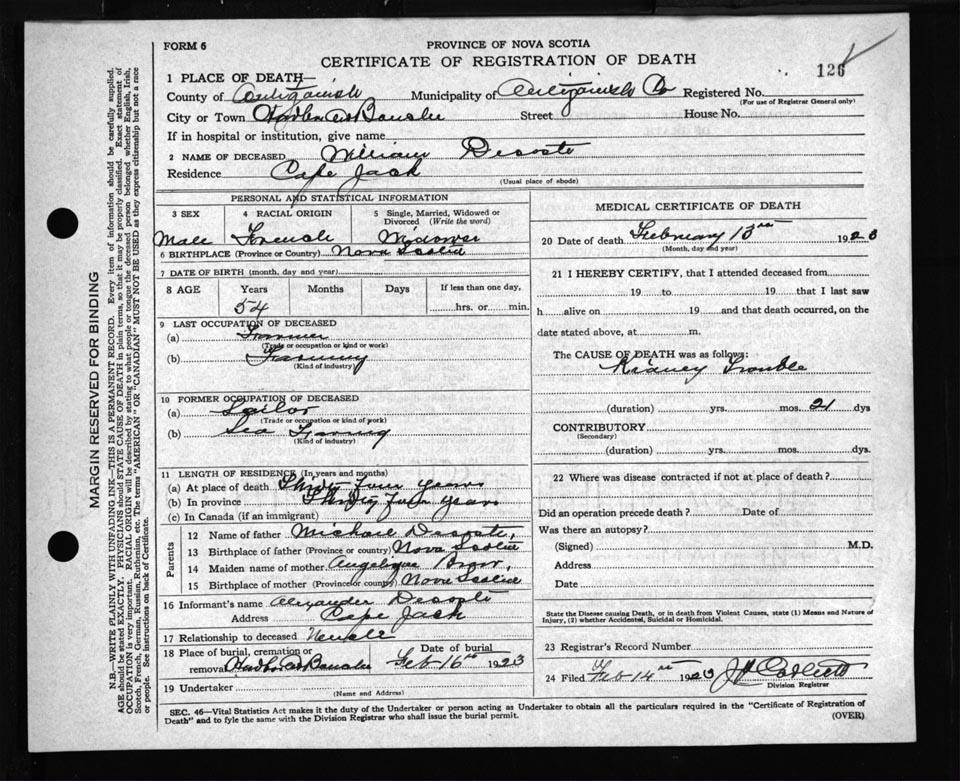 FORM 6
PROVINCE OF NOVA SCOTIA
CERTIFICATE OF REGISTRATION OF DEATH
126
1 PLACE OF DEATH—
County of Antigonish Municipality of Antigonish Co Registered No.
(For use of Registrar General only)
City or Town Harbor Au Bouche Street House No.
If in hospital or institution, give name
2 NAME OF DECEASED William Decoste
Residence Cape Jack
(Usual place of abode)
PERSONAL AND STATISTICAL INFORMATION
3 SEX 4 RACIAL ORIGIN 5 Single, Married, Widowed or Divorced (Write the word)
Male French Widower
6 BIRTHPLACE (Province or Country) Nova Scotia
7 DATE OF BIRTH (month, day and year)
8 AGE Years Months Days If less than one day,
54 hrs. or min.
9 LAST OCCUPATION OF DECEASED
(a) Farmer
(Trade or occupation or kind or work)
(b) Farming
(Kind of industry)
10 FORMER OCCUPATION OF DECEASED
(a) Sailor
(Trade or occupation or kind of work)
(b) Sea
(Kind of industry)
11 LENGTH OF RESIDENCE (In years and months)
(a) At place of death Four years
(b) In province Four years
(c) In Canada (if an immigrant)
Parents
12 Name of father Michael Decoste,
13 Birthplace of father (Province or country) Nova Scotia
14 Maiden name of mother Angelique
15 Birthplace of mother (Province or county) Nova Scotia
16 Informant's name Alexander Decoste
Address Cape Jack
17 Relationship to deceased
18 Place of burial, cremation or removal Harbor Au Bouche
Date of burial
Feb 16th 1923
19 Undertaker
(Name and Address)
MEDICAL CERTIFICATE OF DEATH
20 Date of death February 13th 1923
(Month, day and year)
21 I HEREBY CERTIFY, that I attended deceased from
19 to 19 that I last saw
h alive on 19 and that death occurred, on the
date stated above, at m.
The CAUSE OF DEATH was as follows:
Kidney Trouble
(duration) yrs. mos. 21 dys
CONTRIBUTORY
(Secondary)
(duration) yrs. mos. dys.
22 Where was disease contracted if not at place of death?
Did an operation precede death? Date of
Was there an autopsy?
(Signed) M.D.
Address
Date
State the Disease causing Death, or in death from Violent Causes, state (1) Means and Nature of
Injury, (2) whether Accidental, Suicidal or Homicidal.
23 Registrar's Record Number
24 Filed Feb 14th 1923
Division Registrar
SEC. 46—Vital Statistics Act makes it the duty of the Undertaker or person acting as Undertaker to obtain all the particulars required in the "Certificate of Registration of
Death" and to fyle the same with the Division Registrar who shall issue the burial permit.
(OVER)
MARGIN RESERVED FOR BINDING
N.B.—WRITE PLAINLY WITH UNFADING INK—THIS IS A PERMANENT RECORD. Every item of information should be carefully supplied.
AGE should be stated EXACTLY. PHYSICIANS should STATE CAUSE OF DEATH in plain terms, so that it may be properly classified. Exact statement of
OCCUPATION is very important. RACIAL ORIGIN will be described by stating to what people or tongue the deceased person belonged whether English, Irish,
Scotch, French, German, Russian, Ruthenian, etc. The terms "AMERICAN" OR "CANADIAN" MUST NOT BE USED as they express citizenship but not a race
or people. See instructions on back of Certificate.